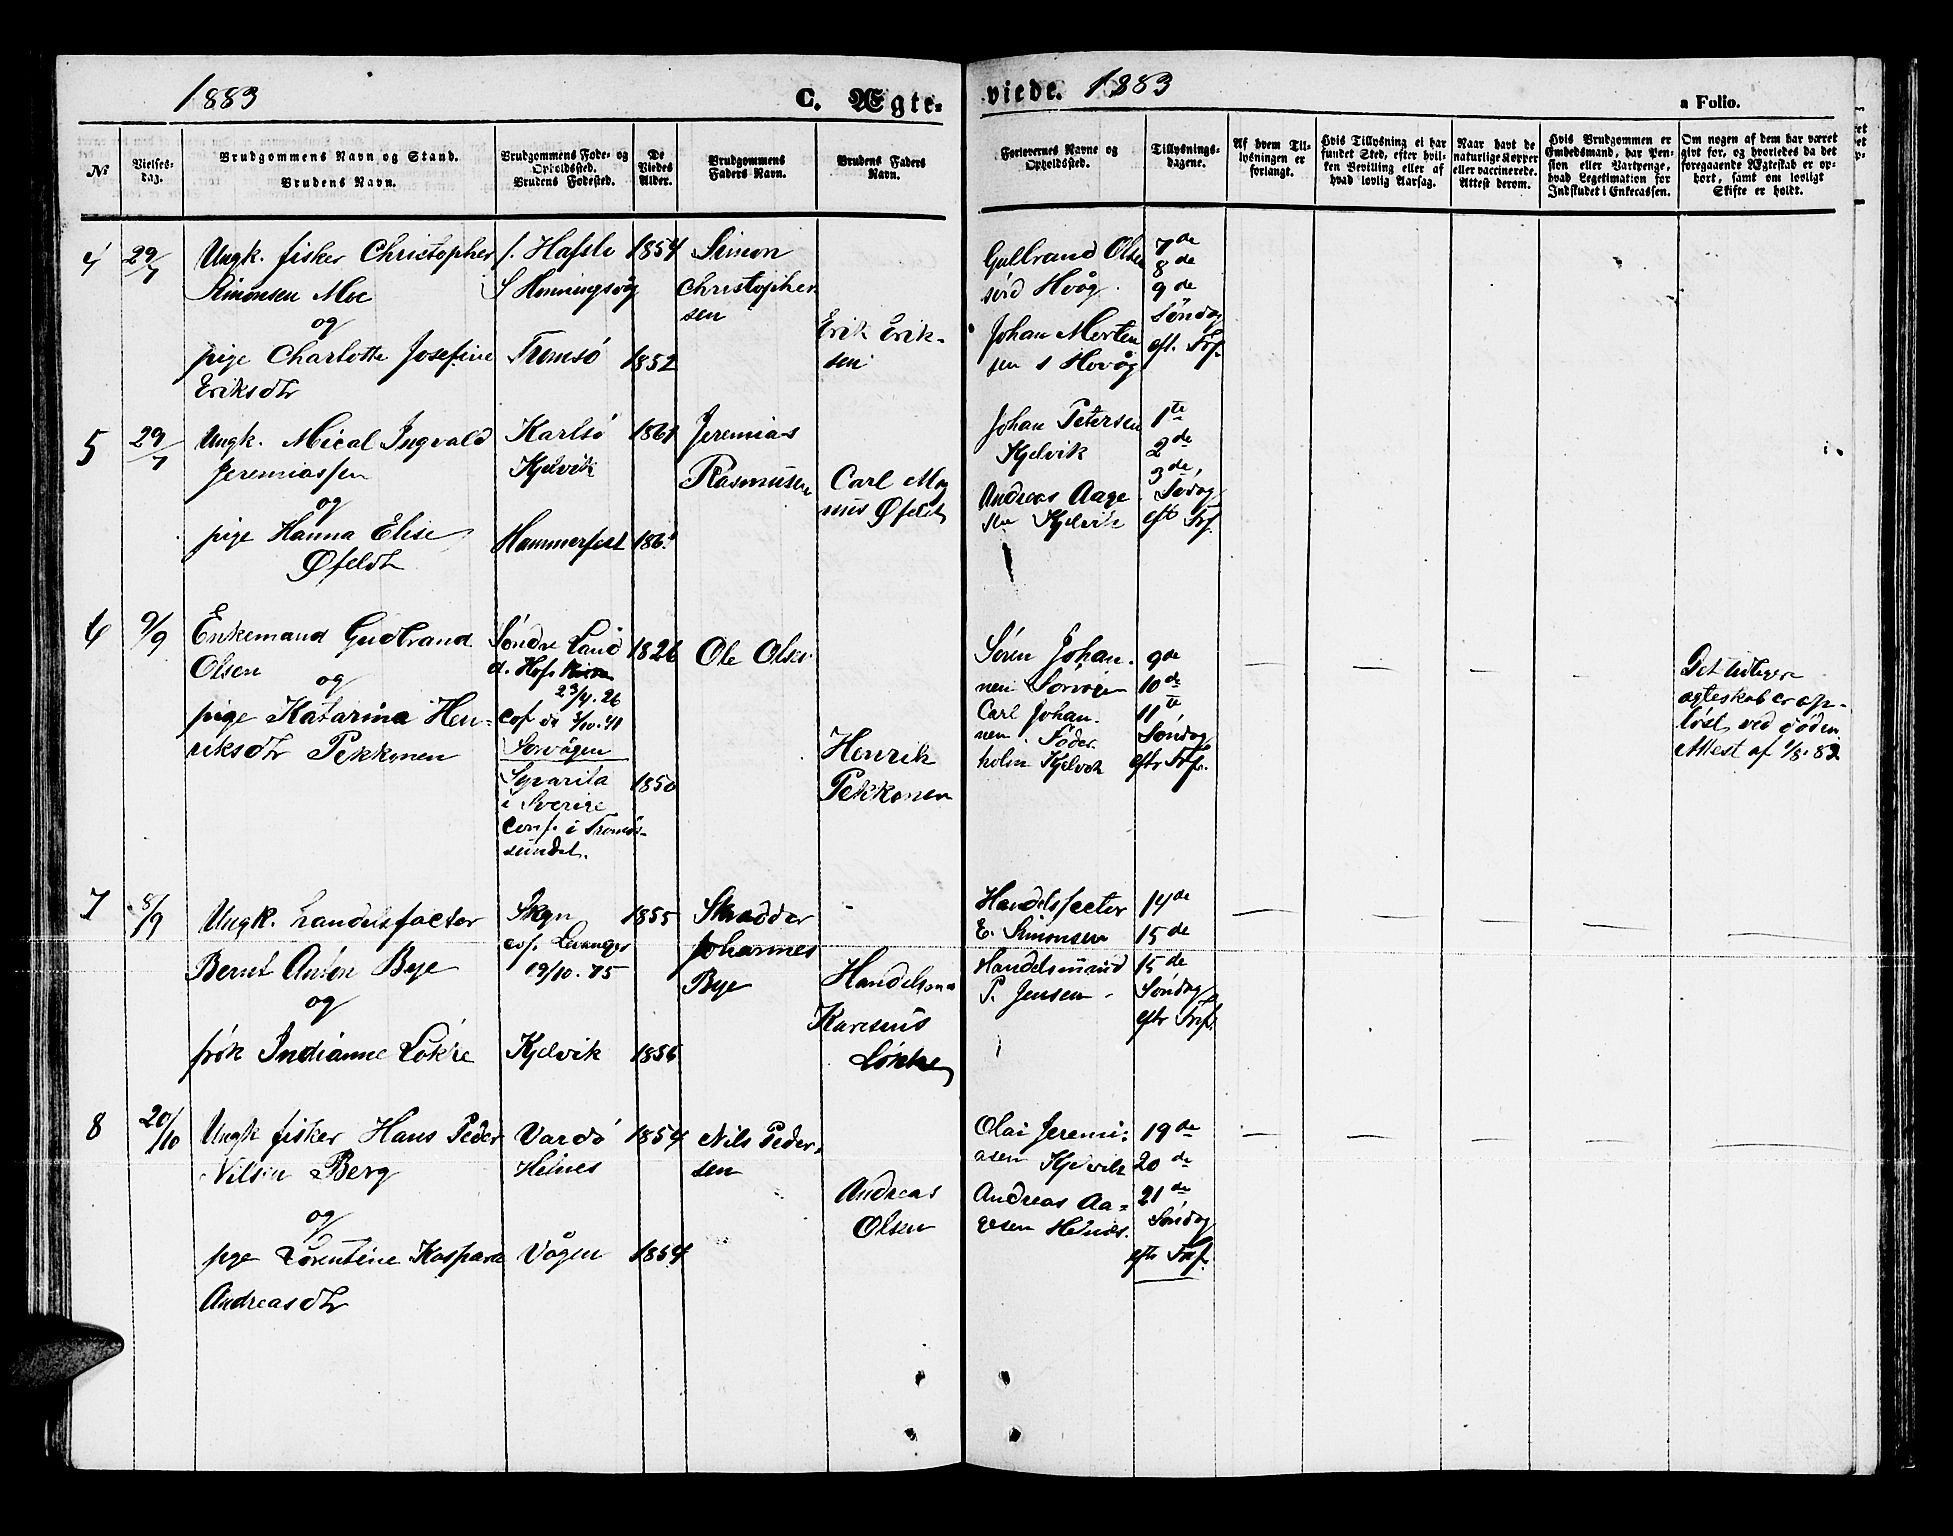 1883
C. Ægte-
viede. 1883
a Folio.
No
Vielses-
dag.
Brudgommens Navn og Stand.
Brudens Navn.
Brudgommens Føde- og
Opholdssted.
Brudens Fødested.
De
Viedes
Alder.
Brudgommens
Faders Navn.
Brudens Faders
Navn.
Forlovernes Navne og
Opholdssted.
Tillysnings-
dagene.
Af hvem Til-
lysningen er
forlangt.
Hvis Tillysning ei har
fundet Sted, efter hvil-
ken Bevilling eller af
hvad lovlig Aarsag.
Naar havt de
naturlige Kopper
eller vaccinerede.
Attest derom.
Hvis Brudgommen er
Embedsmand, har Pen-
sion eller Vartpenge,
hvad Legetimation for
Indskudet i Enkecassen.
Om nogen af dem har været
gift før, og hvorledes da det
foregaaende Ægteskab er op-
hørt, samt om lovligt
Skifte er holdt.
4
29/7
Ungk. fisker Christopher
Simonsen Moe
og
pige Charlotte Josefine
Eriksdtr
f. Hafslo
S Honningsvåg
Tromsö
1854
1852
Simon
Christopher
sen
Erik Erik-
sen
Gulbrand Olsen
Johan Morten
sen
7de
8de
9de
Søndag
eft. Trf.
5
29/7
Ungk. Mical Ingvald
Jeremiassen
og
pige Hanna Elise
Øfeldt
Karlsö
Kjelvik
Hammerfest
1861
Jeremias
Rasmusen
Carl Mag
nus Øfeldt
Johan Petersen
Kjelvik
Andreas Aage
sen Kjelvik
1te
2de
3de
Søndag
eft Trf.
6
9/9
Enkemand Gudbrand
Olsen
og
pige Katarina Hen-
riksdtr Pekkonen
Søndre Land
d. Hofs
23/4. 26
cof do 3/10. 41
Sorvågen
i Sverige
conf. i Tromsö-
sundet.
1826
1850
Ole Olsen
Henrik
Pekkonen
Søren Johan.
nen Sorvågen
Carl Johan.
nen. Føder.
holm Kjelvik
9de
10de
11te
Søndag
eftr Trf.
Det tidligere
ægteskab er op-
løst ved døden
Attest af 1/8. 82
7
8/9
Ungk. handelsfactor
Bernt Anton Bye
og
frøk Indianne Løkke
Skgn
cof. Levanger
19/10. 75
Kjelvik
1855
1856
Skrædder
Johannes
Bye
Handelsm
Karesius
Løkke
Handelsfactor
E. Simonsen
Handelsmand
P. Jensen
14de
15de
15de
Søndag
eftr Trf.
8
20/10
Ungk fisker Hans Peder
Nilsen Berg
og
pige Lorentine Kaspara
Andreasdtr
Vardö
Helnes
Vågen
1854
1854
Nils Peder-
sen
Andreas
Olsen
Olai Jeremi-
asen Kjelvik
Andreas Aa-
gesen Helnes.
19de
20de
21de
Søndag
eftr Trf.